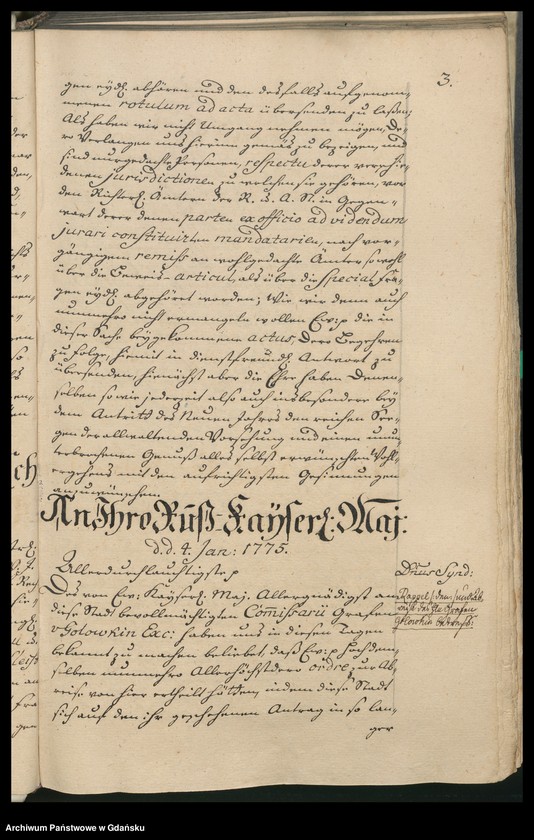 3.
gen eydl. abhören und den desfalls aufgenom-
menen rotulum ad acta übersenden zu laßen;
Als haben wir nicht Umgang nehmen mögen, De-
ro Verlangen uns hierin gemäs zu bezeigen, und
sind nurgedachte Personen, respectu derer verschie-
denen jurisdictionen zu welchen sie gehören, vor
den Richterl. Ämtern der R. u. A. St. in Gegen-
wart derer denen parten ex officio ad videndum
jurari constituirten mandatarien, nach vor-
gängigem remiss an wohlgedachte Ämter sowohl
über die Beweis-articul, als über die special Fra-
gen eydl. abgehöret worden; Wie wir denn auch
nunmehro nicht ermangeln wollen Ew: p die in
dieser Sache beygekommene actus, Dero Begehren
zu folge, hiemit in dienstfreundl. Antwort zu
übersenden, hienächst aber die Ehre haben Denen-
selben so wie jederzeit also auch insbesondere bey
dem Antritt des Neuen Jahres den reichen See-
gen der allwaltenden Vorsehung und einen unun-
terbrochenen Genuß alles selbst erwünschten Wohl-
ergehens mit den aufrichtigsten Gesinnungen
anzuwünschen.
An Ihro Ruß-Kayserl: Maj:
d.d. 4. Jan: 1775.
Allerdurchlauchtigste p
Dnus Synd:
Des von Ew: Kayserl. Maj. Allergnädigst an
diese Stadt bevollmächtigten Comissarii Grafen
v Golowkin Exc: haben uns in diesen Tagen
bekannt zu machen beliebet, daß Ew: p Hochdem-
selben nunmehro Allerhöchstdero ordre, zur Ab-
reise von hier ertheilt hätten, indem diese Stadt
sich auf den ihr geschehenen Antrag in so lan-
ger
des Grafen
Golowkin
Archiwum Państwowe w Gdańsku